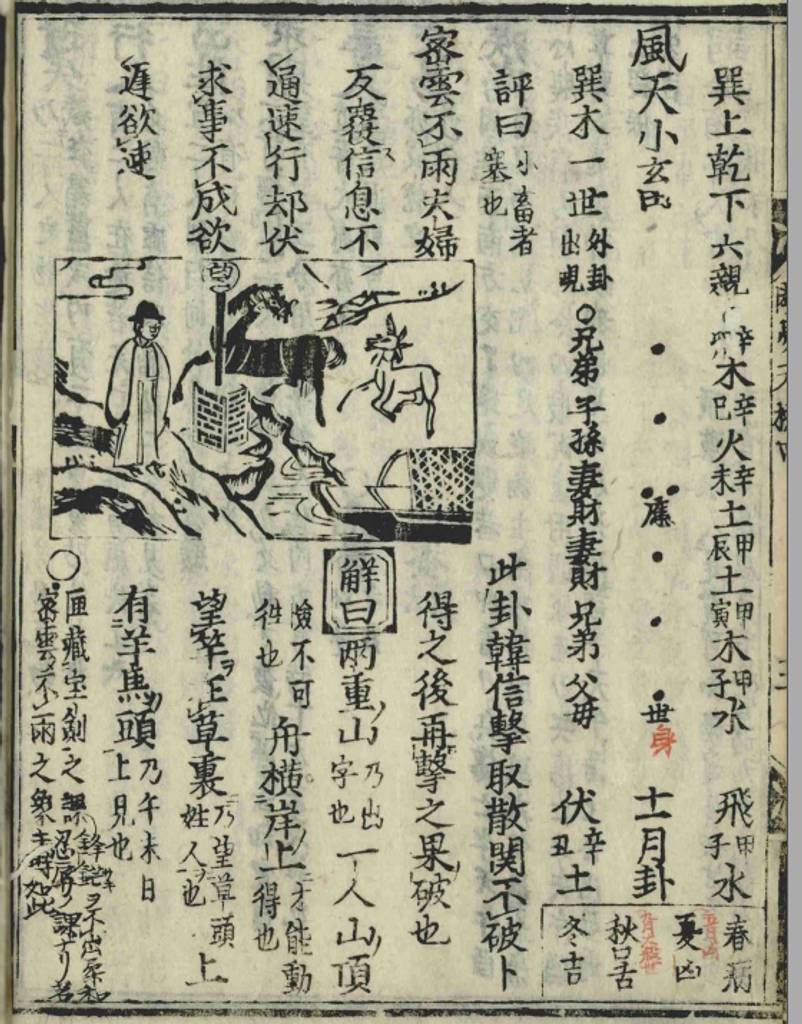 巽上乾下六親 辛卯木辛巳火辛未土甲辰土甲寅木甲子水 飛甲子水
風天小玄田 應 世身 十一月卦
巽木一世外卦出現○兄弟子孫妻財妻財兄弟父母 伏辛丑土
春病
夏凶
秋口舌
冬吉
評曰小畜者塞也
密雲不雨夫婦
反覆信息不
通速行却伏
求事不成欲
遲欲速
尊
此卦韓信擊取散関不破卜
得之後再擊之果破也
解曰兩重山乃出字也一人山頂
險不可徃也 舟橫岸上才能動得也
望竿在草裏乃望草頭姓人也 上
有羊馬頭乃午未日上見也
○匣藏宝劍之課
密雲不雨之象